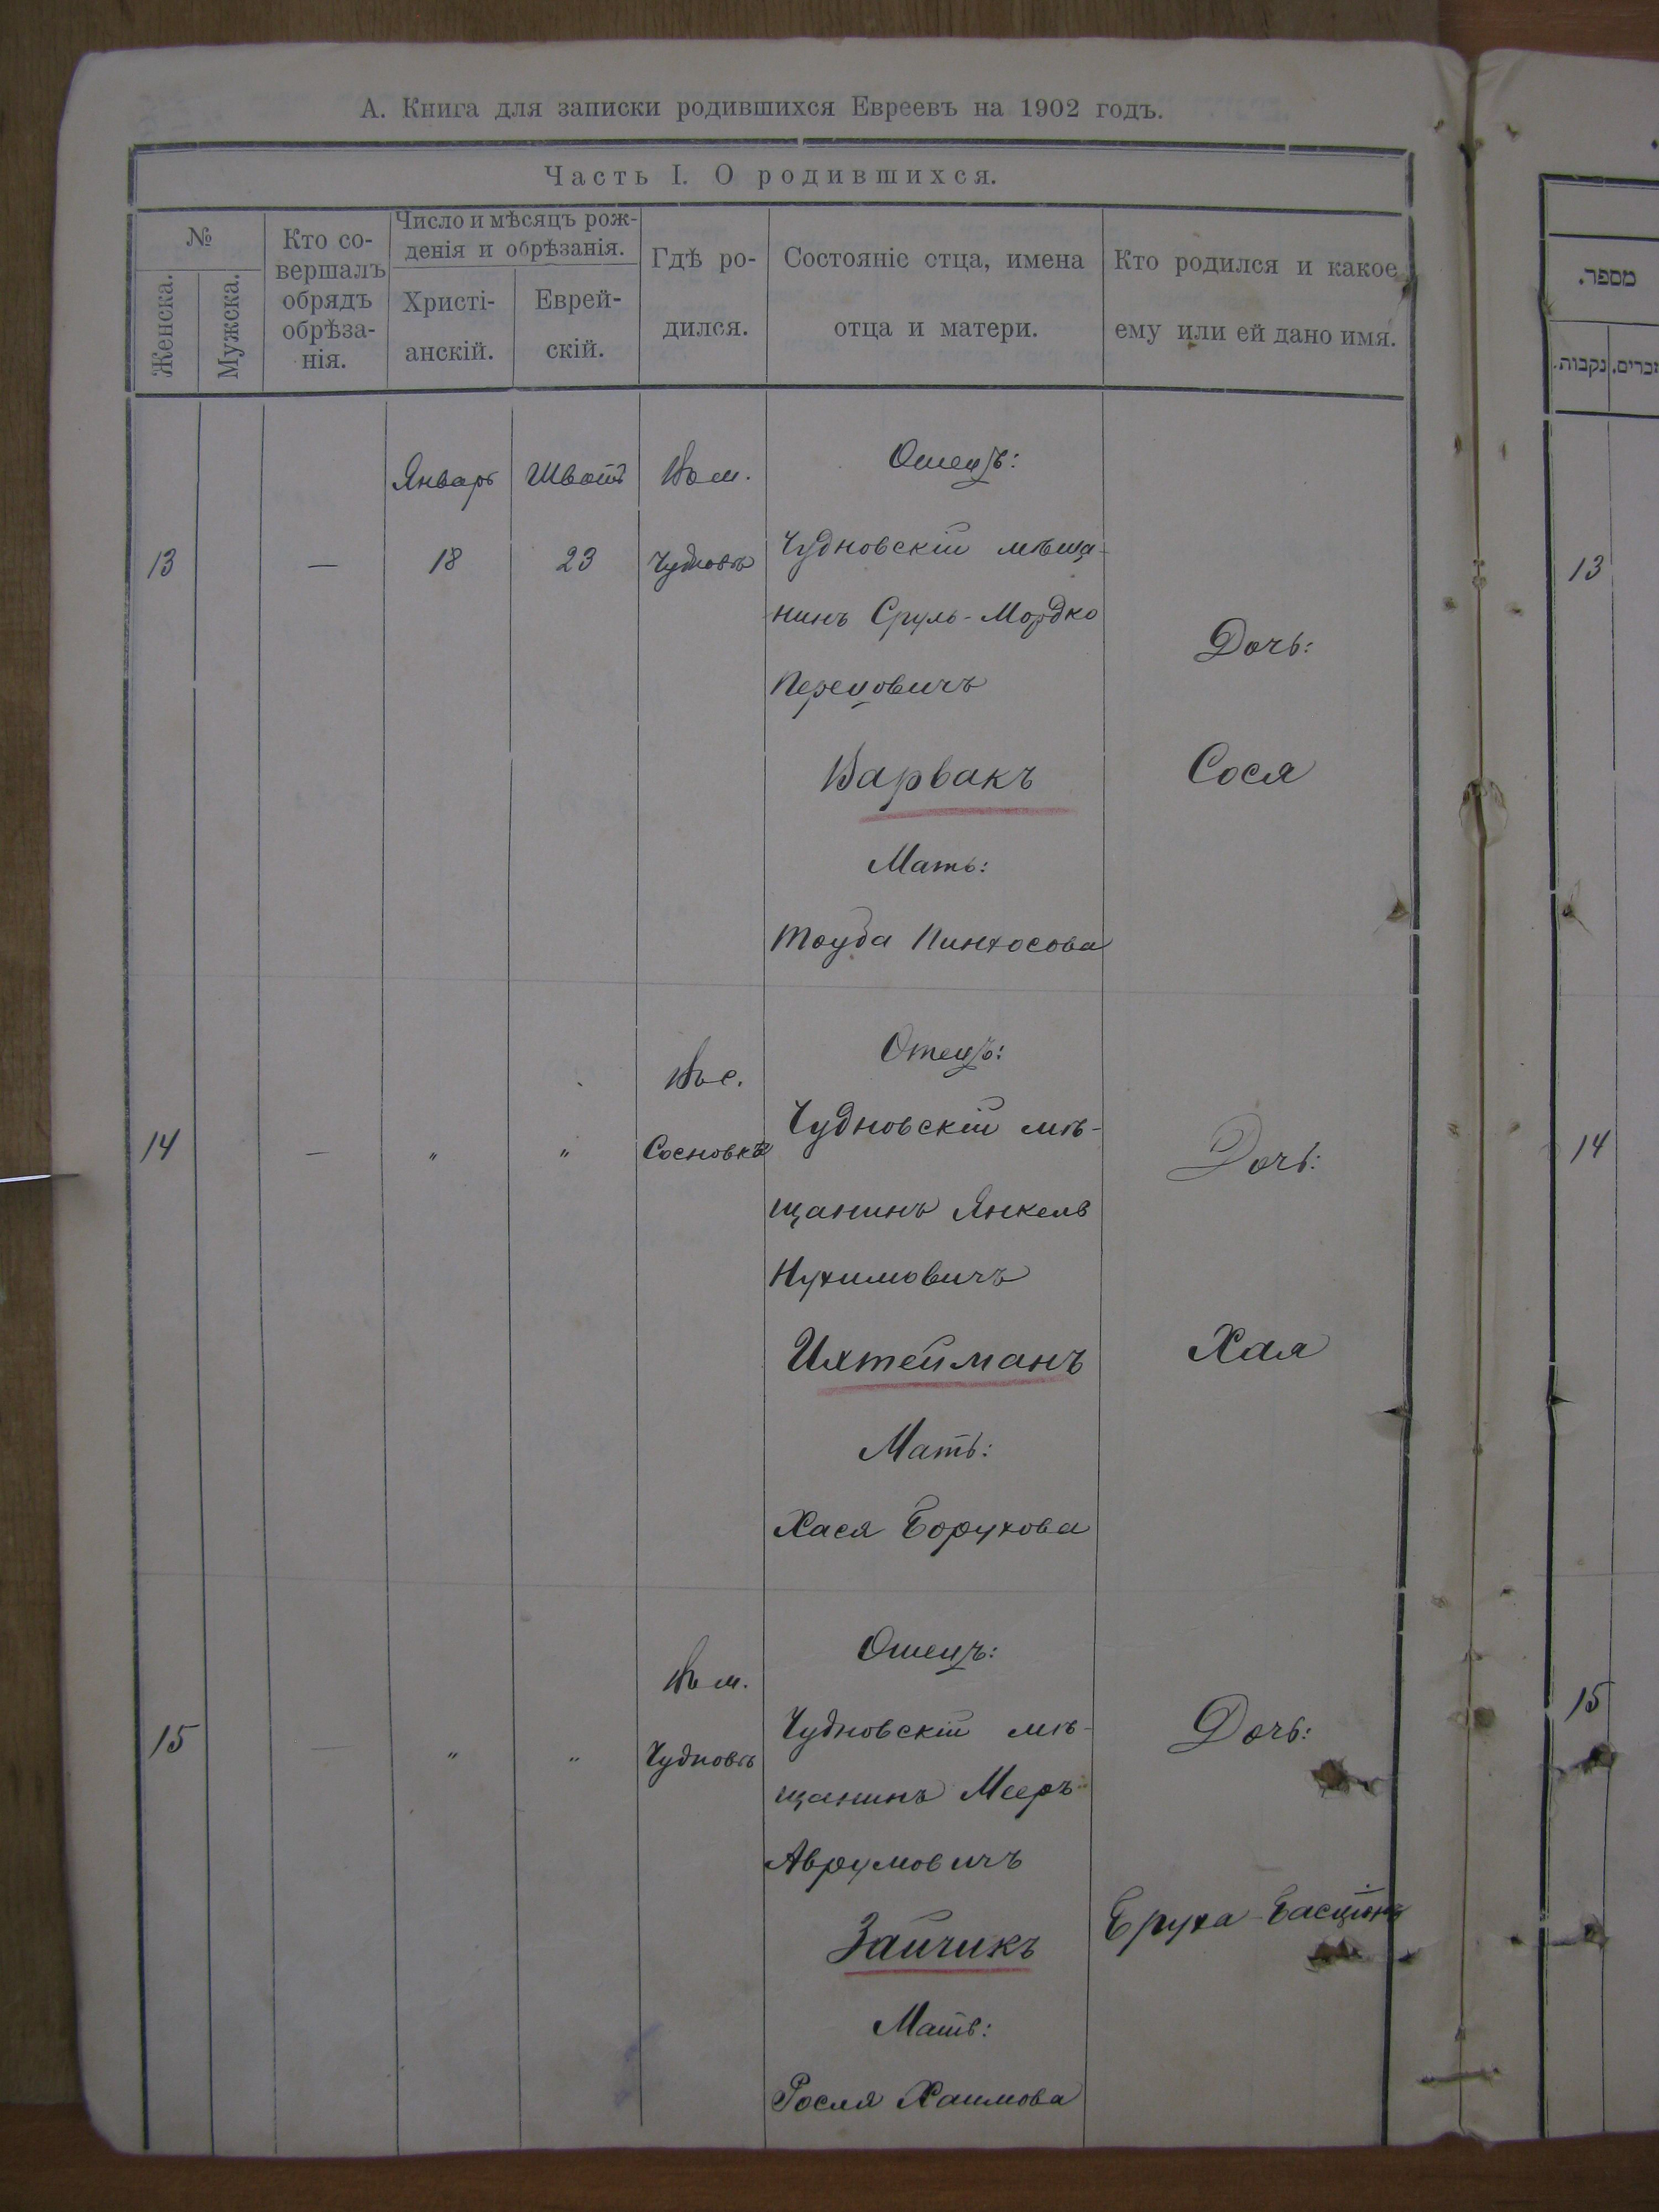 А. Книга для записки родившихся Евреевъ на 1902 годъ.
Часть I. О родившихся.
№
Женска.
Мужска.
Кто со-
вершалъ
обрядъ
обрѣза-
нія.
Число и мѣсяцъ рож-
денія и обрѣзанія.
Христі-
анскій.
Еврей-
скій.
Гдѣ ро-
дился.
Состояніе отца, имена
отца и матери.
Кто родился и какое
ему или ей дано имя.
13
—
Январь
18
Шватъ
23
Въ м.
Чудновѣ
Отецъ:
Чудновскій мѣща-
нинъ Сруль-Мордко
Перецовичъ
Варвакъ
Мать:
Тауба Пинхосова
Дочь:
Сося
14
—
"
"
Въ с.
Сосновкѣ
Отецъ:
Чудновскій мѣ-
щанинъ Янкель
Нухимовичъ
Ихтейманъ
Мать:
Хася Борухова
Дочь:
Хая
15
—
"
"
Въ м.
Чудновѣ
Отецъ:
Чудновскій мѣ-
щанинъ Мееръ
Аврумовичъ
Зайчикъ
Мать:
Росля Хаимова
Дочь:
Бруха-Басціонъ
מספר.
נקבות.
זכרים.
13
14
15